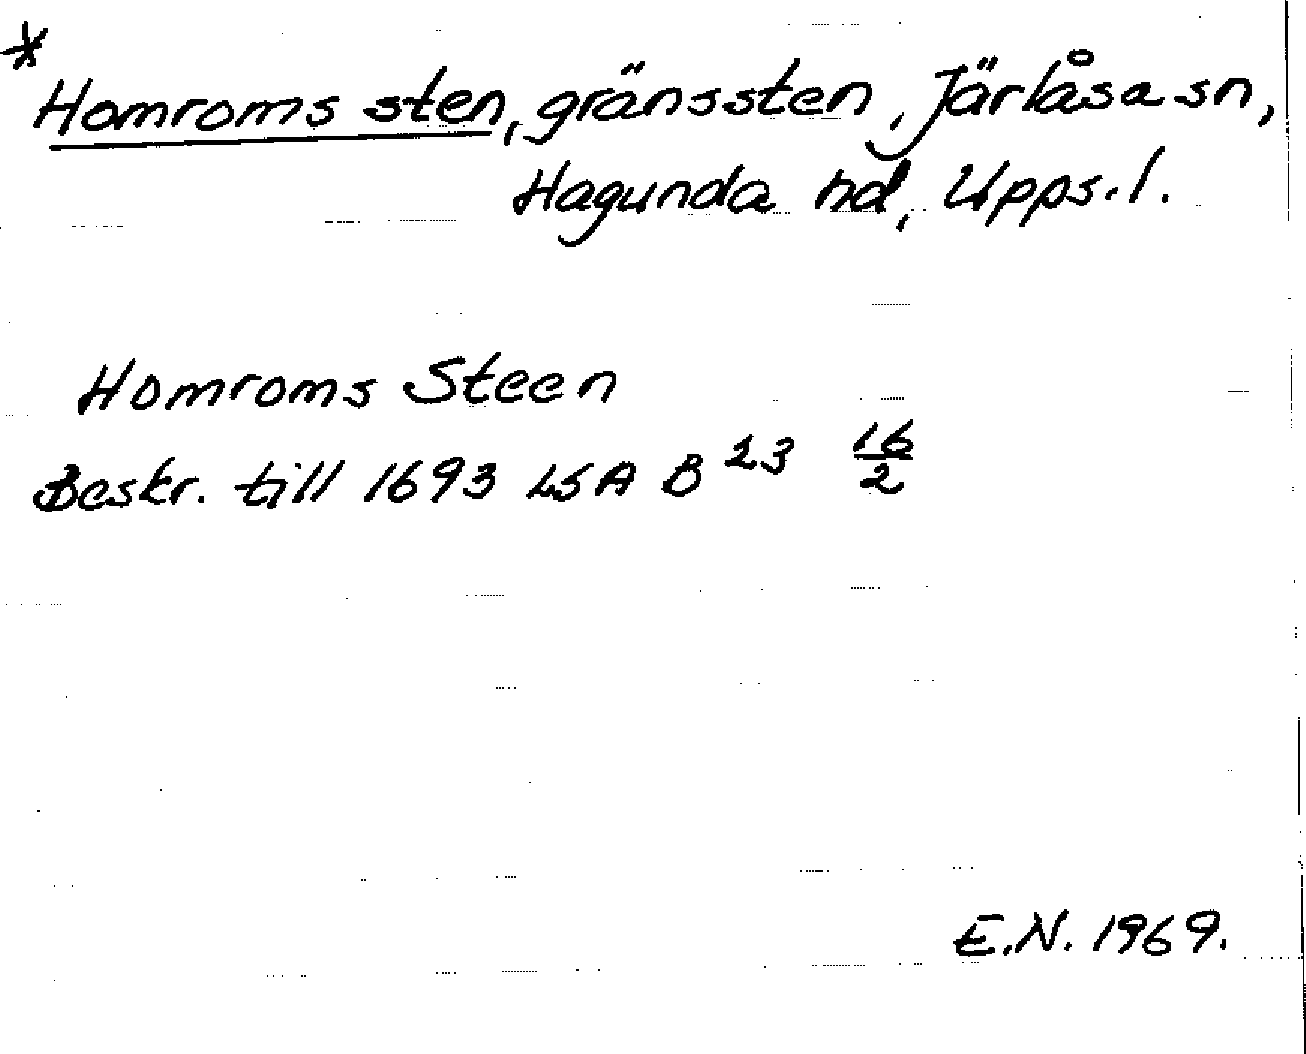 * Homroms sten, gränssten, Järlåsa sn,
Hagunda hd, Upps. l.
Homroms Steen
Beskr. till 1693 LSA B 23 16/2
E.N. 1969.